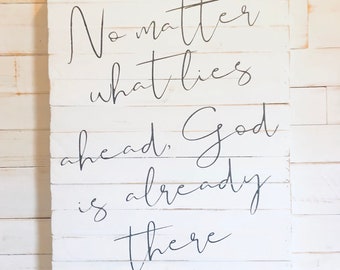 No matter
what lies
ahead, God
is already
there